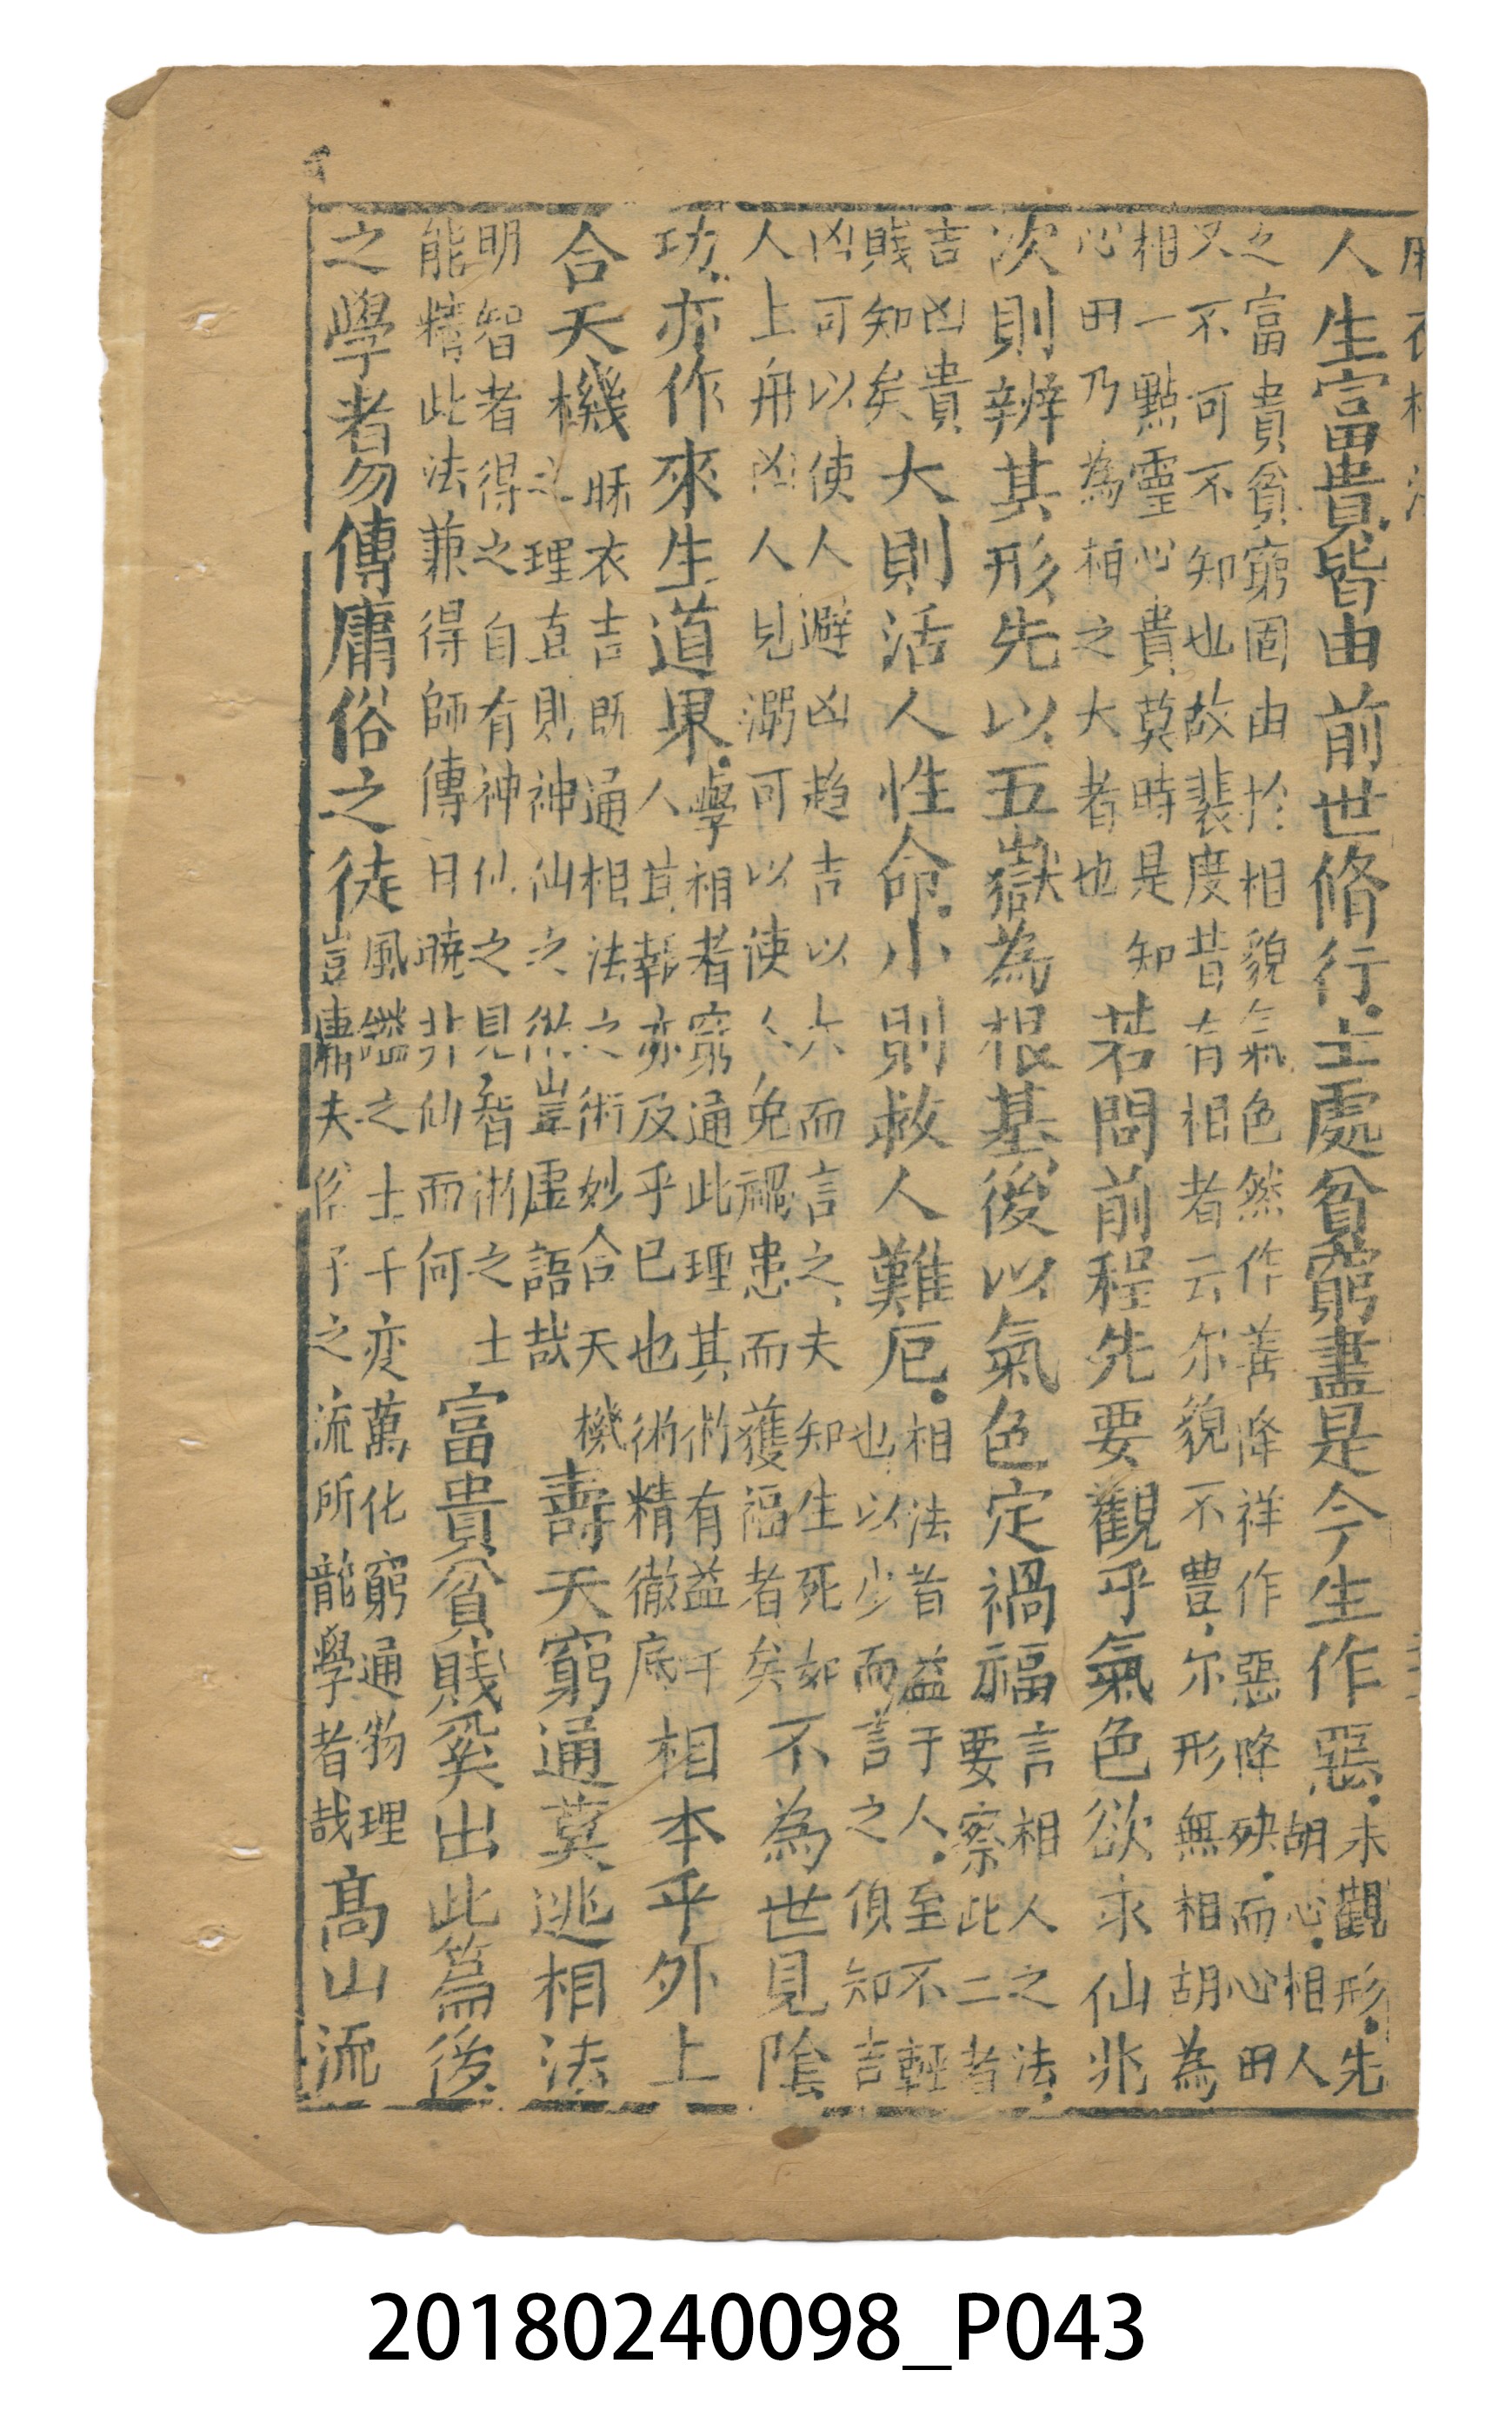 人生富貴皆由前世脩行士處貧窮盡是今生作惡未觀形先
胡心相人
之富貴貧窮固由於相貌氣色然作善降祥作惡降殃而心田
又不可不知也故裴度昔有相者云尔貌不豊尔形無相胡為
相一點靈心貴莫時是知
心田乃為相之大者也
若問前程先要觀乎氣色欲求仙兆
次則辨其形先以五嶽為根基後以氣色定禍福言相人之法
要察此二者
吉凶貴
賤知矣
大則活人性命小則救人難厄相法昔益于人至不輕
也以少而言之須知吉
凶可以使人避凶趋吉以大而言之夫知生死如
人上舟凶人見溺可以使人免禍患而獲福者矣
不為世見陰
功亦作來生道果學相者窮通此理其術有益于
人其報亦及乎已也術精徹底
相本乎外上
合天機
麻衣吉既通相法之術妙合天機
之理直則神仙之從豈虛語哉
壽夭窮通莫逃相法
明智者得之自有神仙之見智術之士
能精此法兼得師傳日曉非仙而何
富貴貧賤奚出此篇後
之學者勿傳庸俗之徒風鑑之士千变萬化窮通物理
豈庸夫俗子之流所能學者哉
高山流